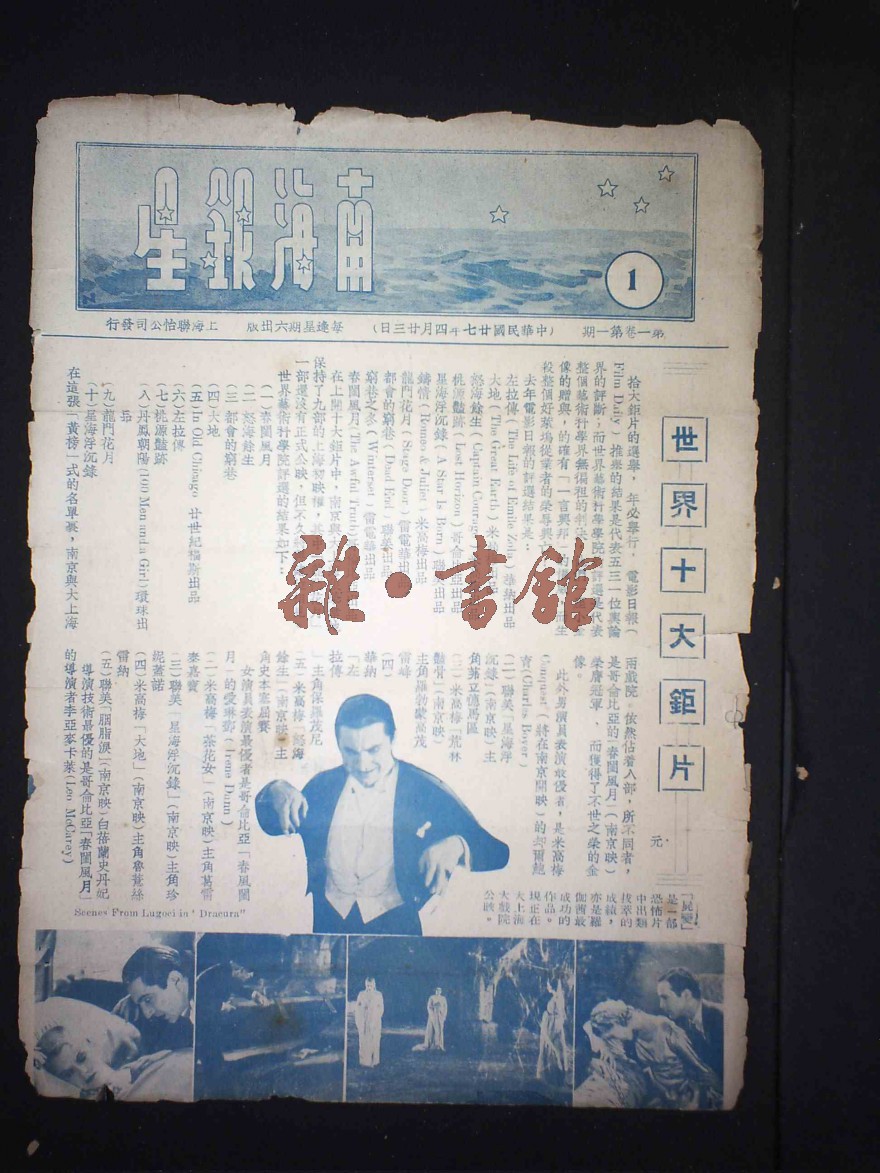 南海銀星
1
第一卷第一期 (中華民國廿七年四月廿三日) 每逢星期六出版 上海聯怡公司發行
世界十大鉅片
元
拾大鉅片的選舉，年必舉行，電影日報(
Film Daily)推舉的結果是代表五三一位輿論
界的評斷；而世界藝術科學學院的評選是代表
整個藝術科學界無偏袒的
像的贈與，的確有「一言興邦」的
役整個好萊塢從業者的榮辱與
去年電影日報的評選結果是：
左拉傳(The Life of Emile Zola)華納出品
大地(The Great Earth)米
怒海餘生(Captain Courag
桃源豔跡(Lost Horizon)哥倫比亞出品
星海浮沉錄(A Star Is Born)聯美出品
鑄情(Romeo & Juliet)米高梅出品
龍門花月(Stage Door)雷電華出品
都會的窮巷(Dead End)聯美出品
窮巷之冬(Winterset)雷電華出品
春閨風月(The Awful Truth)
在上開十大鉅片中，南京與
保持了九部的上海初映權，其
一部還沒有正式公映，但不久
世界藝術科學院評選的結果如下：
(一)春閨風月
(二)怒海餘生
(三)都會的窮巷
(四)大地
(五)In Old Chicago 廿世紀福斯出品
(六)左拉傳
(七)桃源豔跡
(八)丹鳳朝陽(100 Men and a Girl)環球出
品
(九)龍門花月
(十)星海浮沉錄
在這張「黃榜」式的名單裏，南京與大上海
兩戲院，依然佔着八部，所不同者，
是哥倫比亞的「春閨風月」(南京映)
榮膺冠軍，而獲得了不世之榮的金
像。
此外男演員表演最優者，是米高梅
Conquest」(將在南京開映)的却爾鮑
育(Charles Boyer)
(二)聯美「星海浮
沉錄」(南京映)主
角弗立德馬區
(三)米高梅「荒林
豔骨」(南京映)
主角羅勃蒙高茂
雷峰
(四)
華納
「左
拉傳
」主角保羅茂尼
(五)米高梅「怒海
餘生」(南京映)主
角史本塞屈賽
女演員表演最優者是哥倫比亞「春風閨
月」的愛琳鄧(Irene Dunn)
(二)米高梅「茶花女」(南京映)主角葛雷
泰嘉寶
(三)聯美「星海浮沉錄」(南京映)主角珍
妮蓋諾
(四)米高梅「大地」(南京映)主角魯薏絲
雷納
(五)聯美「胭脂淚」(南京映)白蓓蘭史丹妃
導演技術最優的是哥倫比亞「春閨風月」
的導演者李亞麥卡萊(Leo McCarey)
「屍變」
是一部
恐怖片
中出類
拔萃的
成績，
亦是羅
伽茜最
成功的
作品。
現正在
大上海
大戲院
公映。
Scenes From Lugoci in "Dracura"
雜·書館